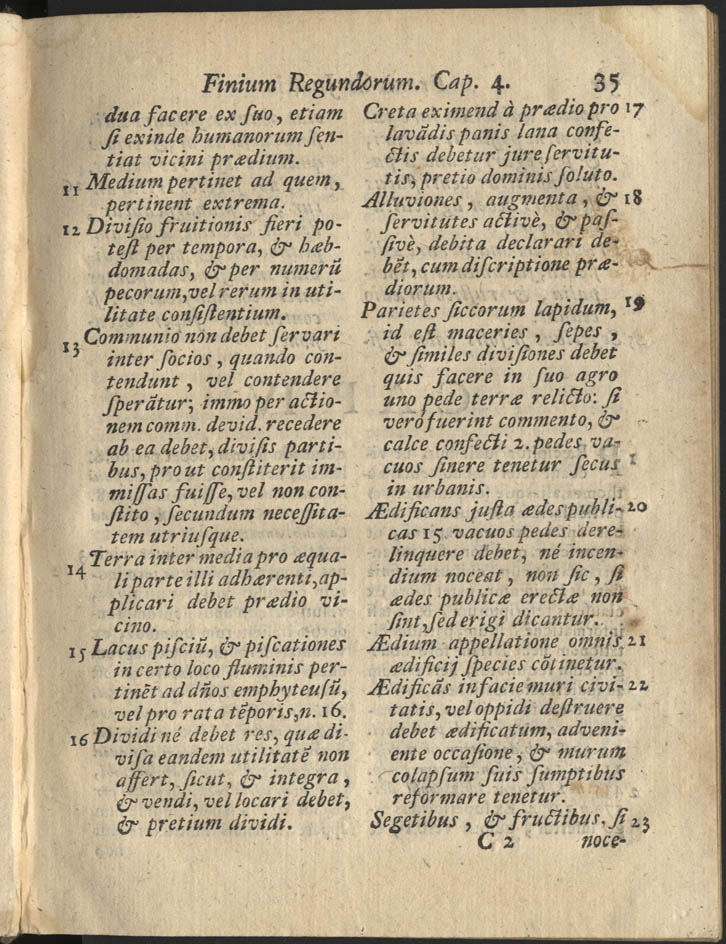 Finium Regundorum. Cap. 4. 35
dua facere ex ſuo, etiam
ſi exinde humanorum ſen-
tiat vicini prædium.
11 Medium pertinet ad quem,
pertinent extrema.
12 Diviſio fruitionis fieri po-
teſt per tempora, & hæb-
domadas, & per numerū
pecorum, vel rerum in uti-
litate conſiſtentium.
13 Communio non debet ſervari
inter ſocios, quando con-
tendunt, vel contendere
ſperātur; immo per actio-
nem comm. devid. recedere
ab ea debet, diviſis parti-
bus, prout conſtiterit im-
miſſas fuiſſe, vel non con-
ſtito, ſecundum neceſſita-
tem utriuſque.
14 Terra inter media pro æqua-
li parte illi adhærenti, ap-
plicari debet prædio vi-
cino.
15 Lacus piſciū, & piſcationes
in certo loco fluminis per-
tinēt ad dños emphyteuſū,
vel pro rata tēporis, n. 16.
16 Dividi né debet res, quæ di-
viſa eandem utilitatē non
affert, ſicut, & integra,
& vendi, vel locari debet,
& pretium dividi.
Creta eximend à prædio pro 17
lavādis panis lana confe-
ctis debetur jure ſervitu-
tis, pretio dominis ſoluto.
Alluviones, augmenta, & 18
ſervitutes activè, & paſ-
ſivè, debita declarari de-
bēt, cum diſcriptione præ-
diorum.
Parietes ſiccorum lapidum, 19
id eſt maceries, ſepes,
& ſimiles diviſiones debet
quis facere in ſuo agro
uno pede terræ relicto: ſi
verò fuerint commento, &
calce confecti 2. pedes va-
cuos ſinere tenetur ſecus
in urbanis.
Ædificans juſta ædes publi- 20
cas 15. vacuos pedes dere-
linquere debet, né incen-
dium noceat, non ſic, ſi
ædes publicæ erectæ non
ſint, ſed erigi dicantur.
Ædium appellatione omnis 21
ædificij ſpecies cōtinetur.
Ædificās in facie muri civi- 22
tatis, vel oppidi deſtruere
debet ædificatum, adveni-
ente occaſione, & murum
colapſum ſuis ſumptibus
reformare tenetur.
Segetibus, & fructibus, ſi 23
C 2 noce-